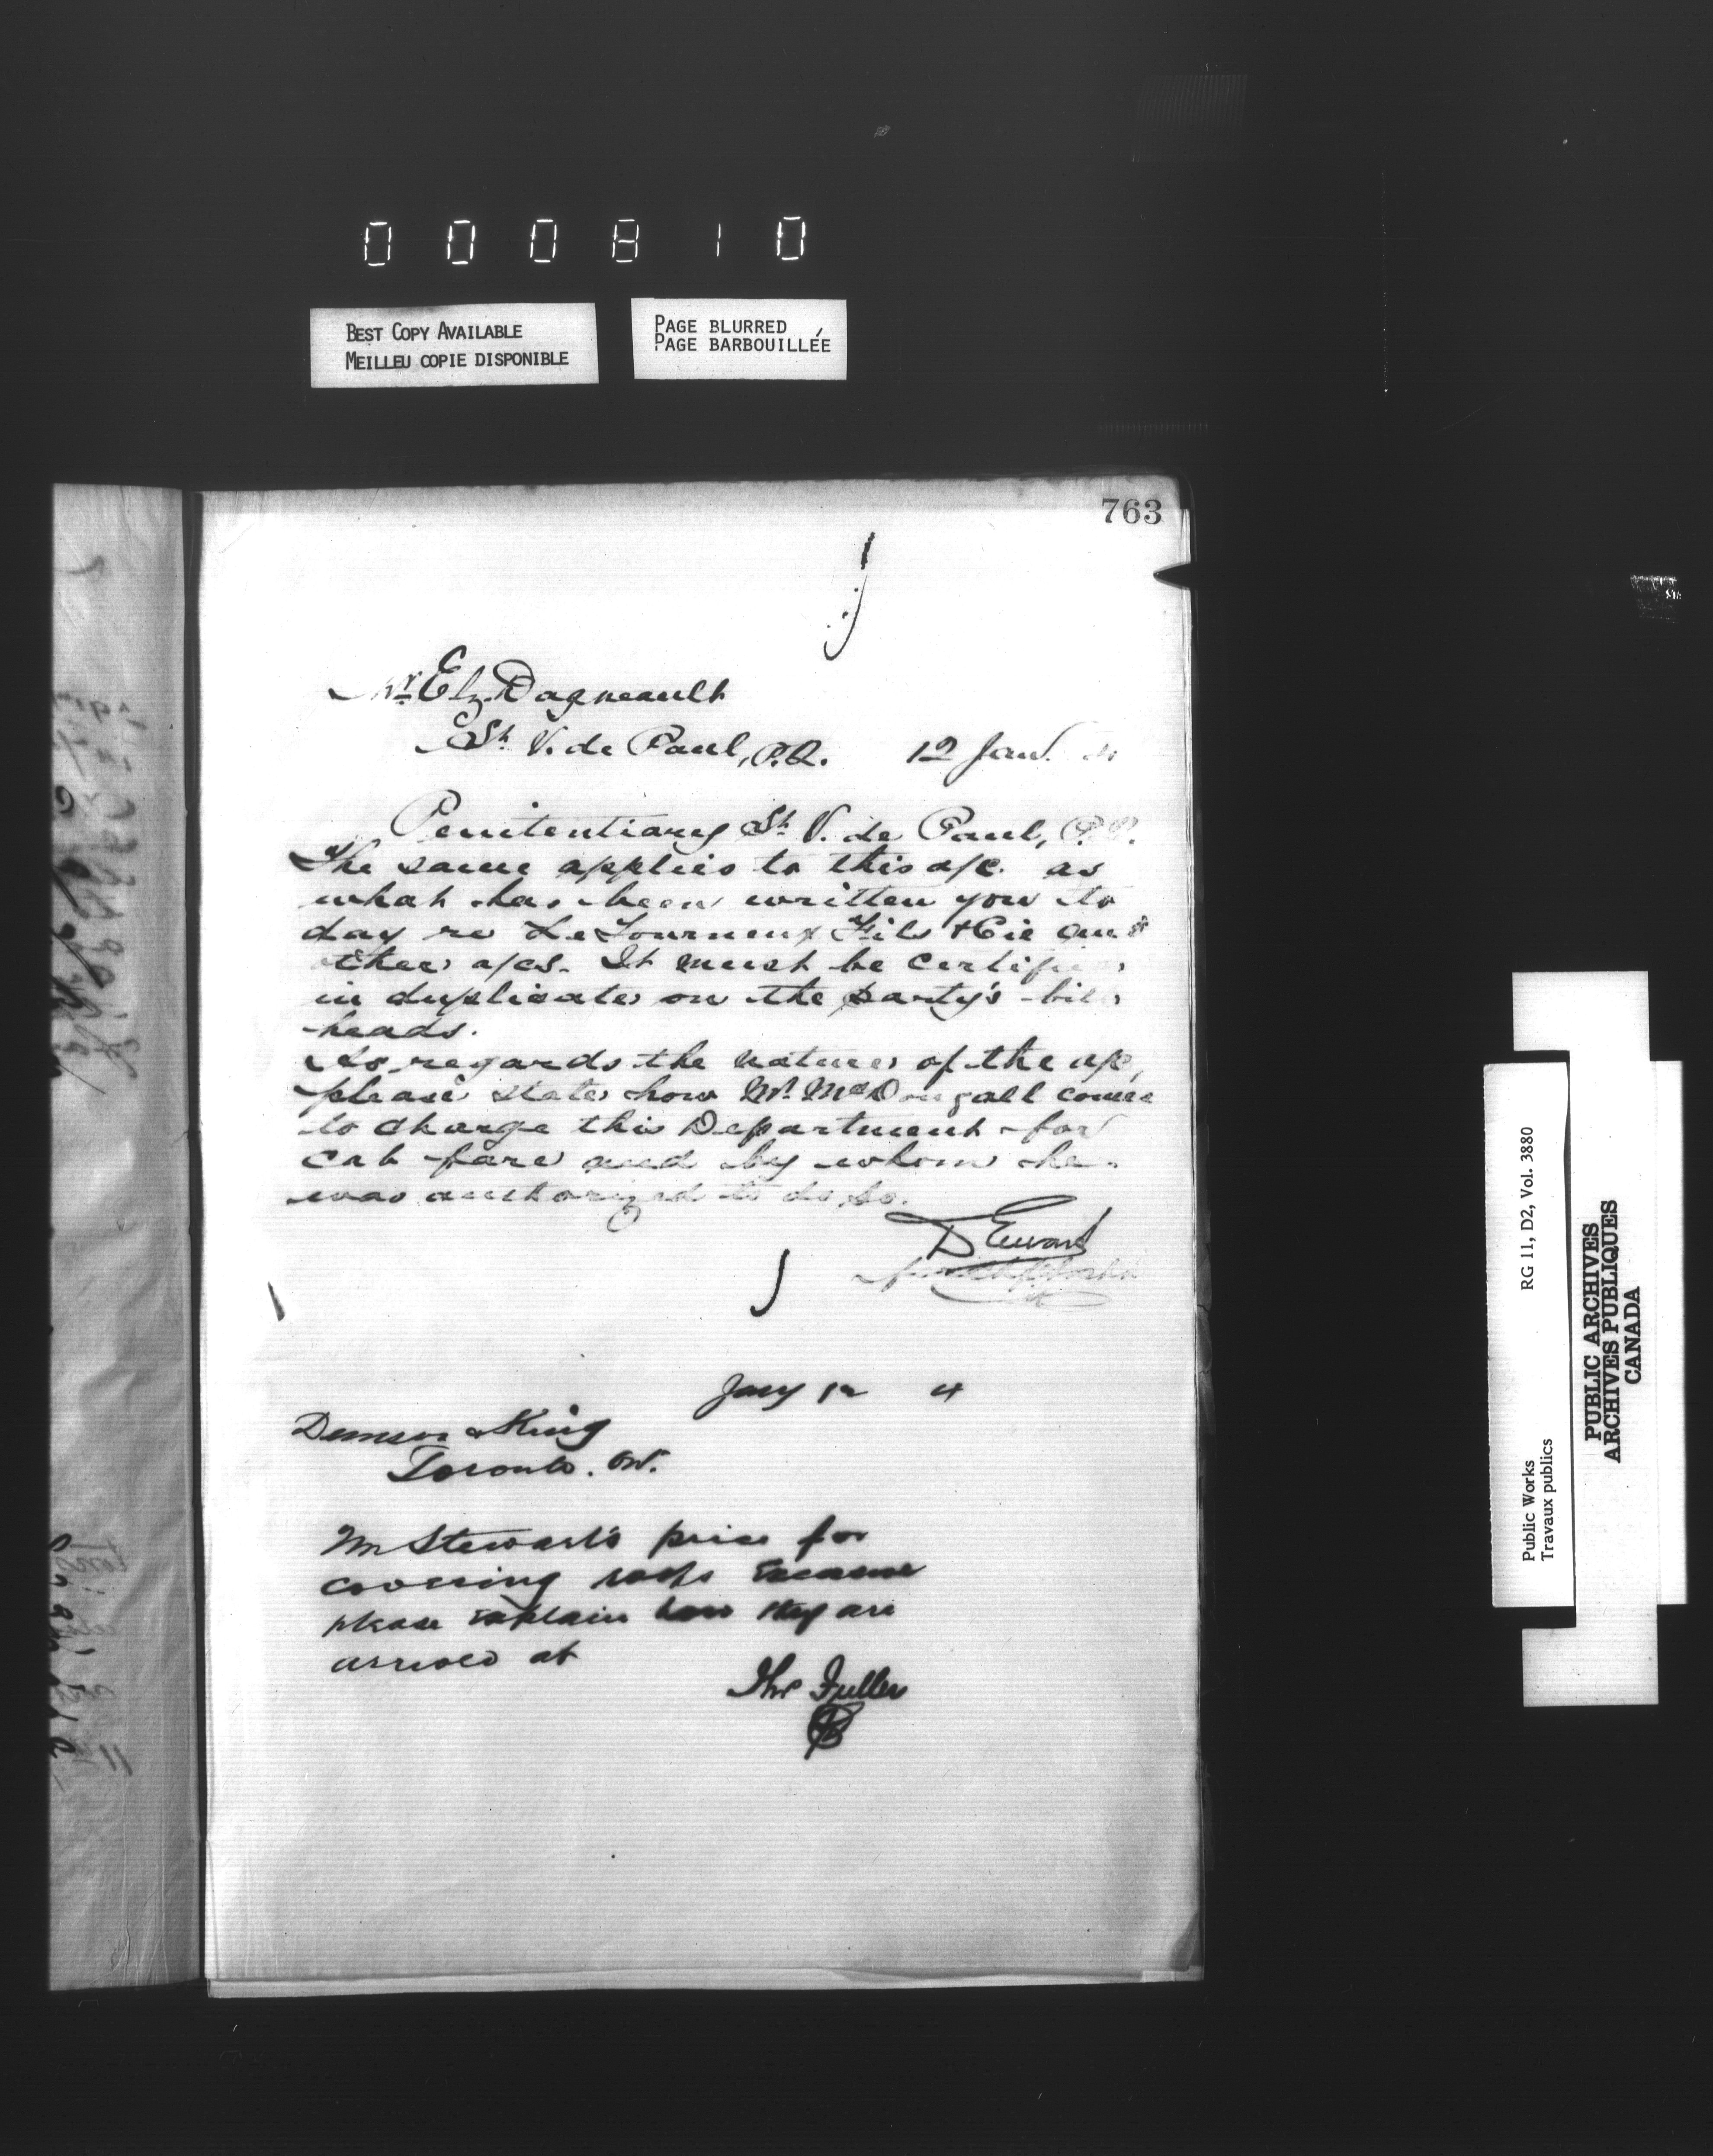 000810
BEST COPY AVAILABLE
MEILLEU COPIE DISPONIBLE
PAGE BLURRED
PAGE BARBOUILLÉE
763
Mr. Elz. Dagneault
St. V. de Paul, P.Q. 12 Jany.
Penitentiary St. V. de Paul, P.Q.
The same applies to this a/c. as
what has been written you to
day re LeTourneux Fils & Cie and
other a/cs. It must be certified
in duplicate on the party's bill
heads.
As regards the nature of the a/c,
please state how Mr. McDougall comes
to charge this Department for
cab fare and by whom he
was authorized to do so.
D Ewart
Jany 12 4
& King
Toronto. Ont.
Mr Stewart's price for
covering
please explain how they are
arrived at
Thos Fuller
Public Works
Travaux publics
RG 11, D2, Vol. 3880
PUBLIC ARCHIVES
ARCHIVES PUBLIQUES
CANADA